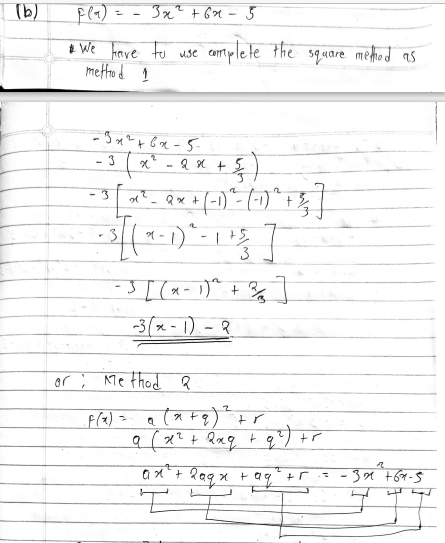 (b) f(x) = - 3x² + 6x - 5
We have to use complete the square method as
method 1
-3x² + 6x - 5
-3 ( x² - 2x + 5/3 )
-3 [ x² - 2x + (-1)² - (-1)² + 5/3 ]
-3 [ ( x - 1 )² - 1 + 5/3 ]
-3 [ ( x - 1 )² + 2/3 ]
-3(x - 1) - 2
or ; Method 2
f(x) = a ( x + q )² + r
a ( x² + 2xq + q² ) + r
ax² + 2aqx + aq² + r = - 3x² + 6x - 5